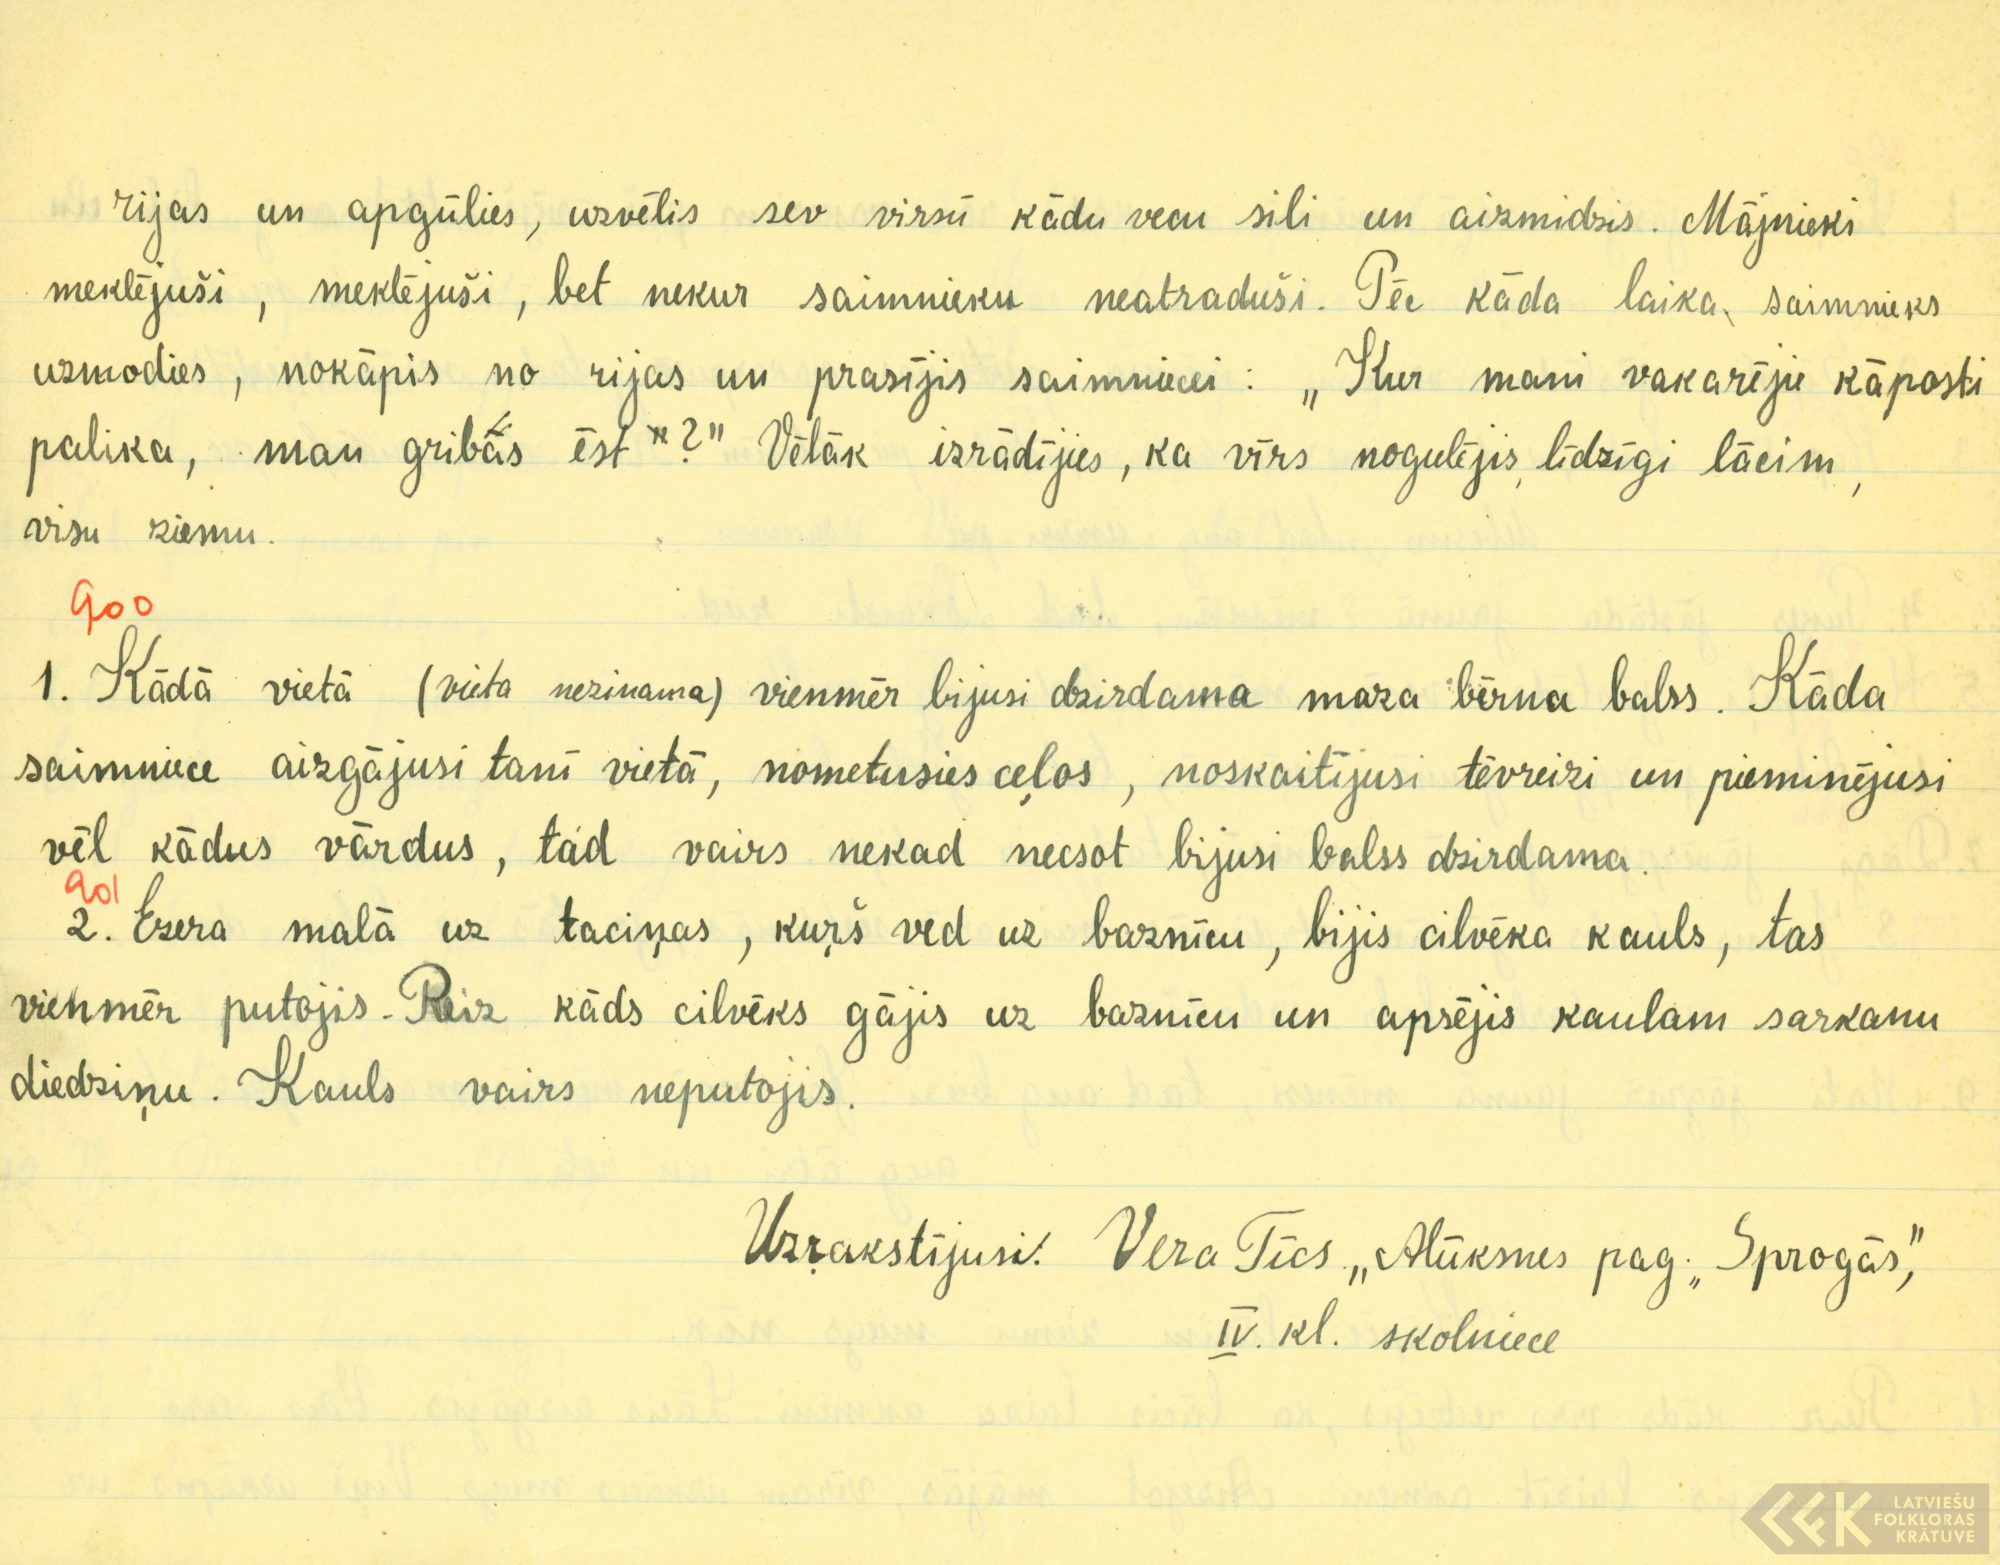 rijas un apgūlies, uzvēlis sev virsū kādu vecu sili un aizmidzis. Mājnieki
meklējuši, meklējuši, bet nekur saimnieku neatraduši. Pēc kāda laika, saimnieks
uzmodies, nokāpis no rijas un prasījis saimniecei: „Kur mani vakarēju kāposti
palika, man gribās ēst?" Vēlāk izrādījies, ka vīrs nogulējis, līdzīgi lācim,
visu ziemu.
900
1. Kādā vietā (vieta nezinama) vienmēr bijusi dzirdama maza bērna balss. Kāda
saimniece aizgājusi tanī vietā, nometusies ceļos, noskaitījusi tēvreizi un pieminējusi
vēl kādus vārdus, tad vairs nekad neesot bijusi balss dzirdama.
901
2. Ezera malā uz taciņas, kuŗš ved uz baznīcu, bijis cilvēka kauls, tas
vienmēr putojis. Reiz kāds cilvēks gājis uz baznīcu un apsējis kaulam sarkanu
diedziņu. Kauls vairs neputojis.
Uzrakstījusi: Vera Tīcs „Alūksnes pag. „Sprogās",
IV. kl. skolniece
LATVIEŠU
FOLKLORAS
KRĀTUVE